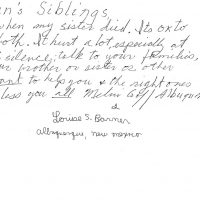 n's Siblings
when my sister died. Its ok to
both. It hurt a lot, especially at
silence, talk to your families,
ur brother or sister or other
ant to help you & the right ones
less you all
&
Louise S. Barner
Albuquerque, new mexico